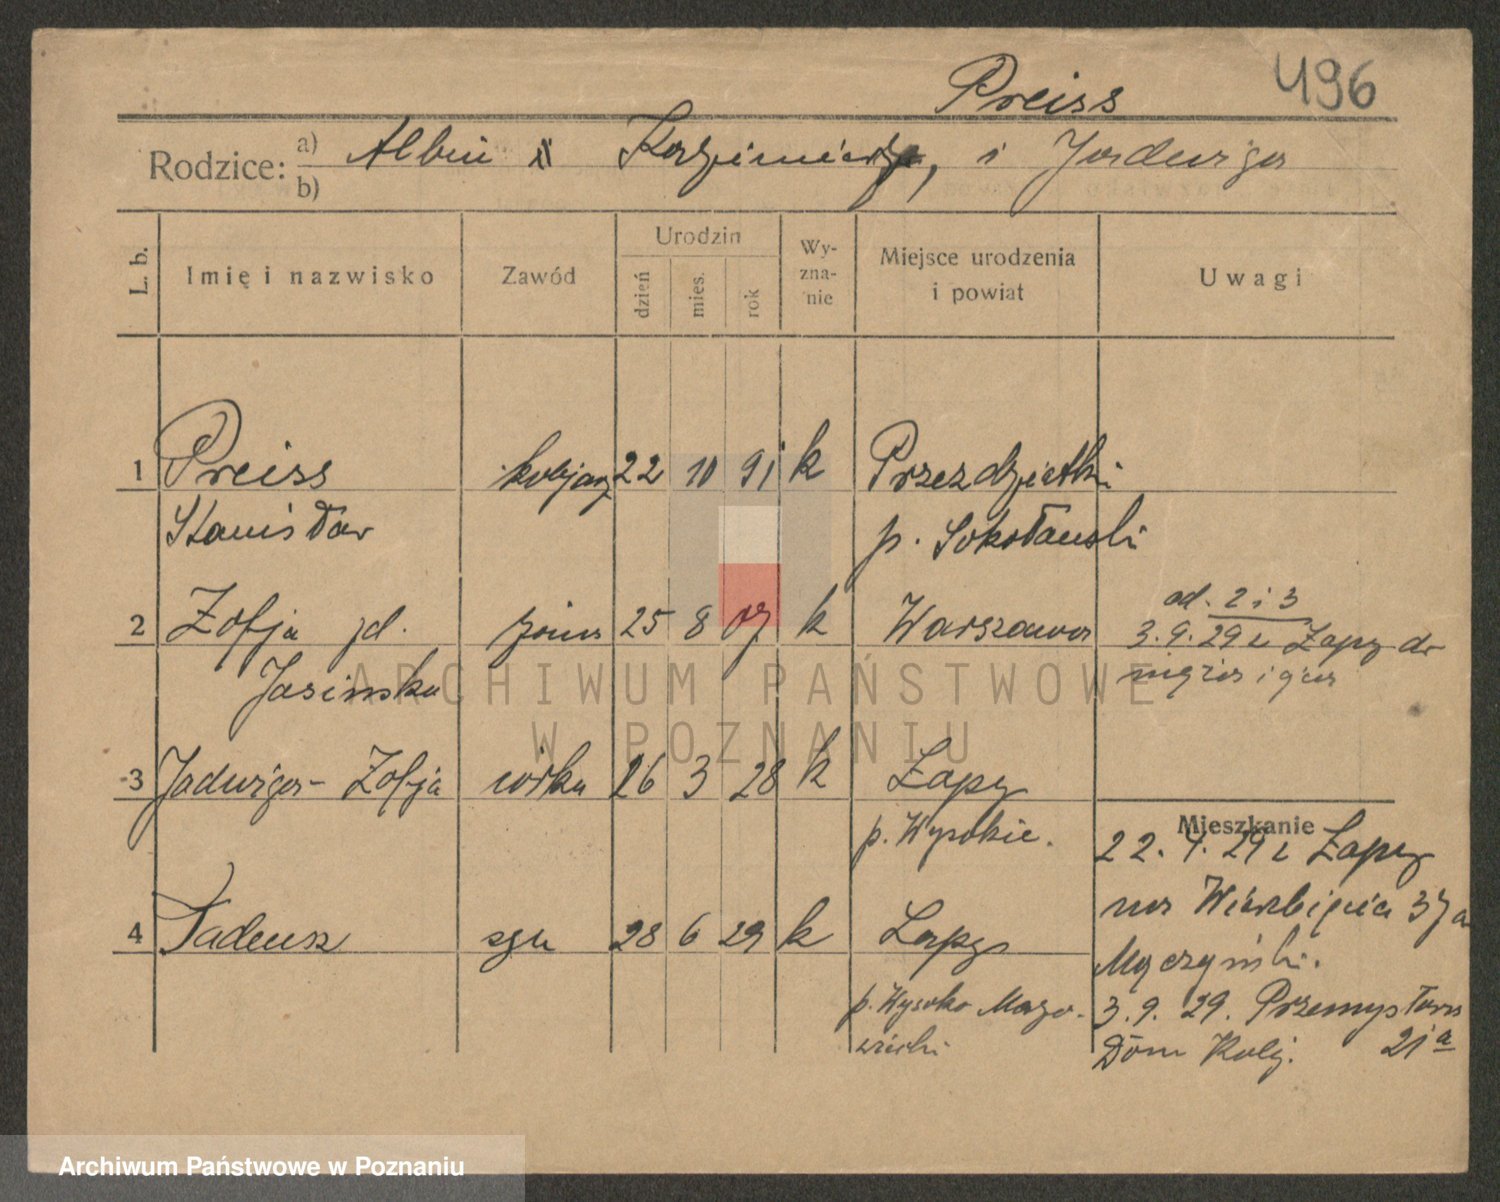 Preiss 496
Rodzice: a) Albin Kazimierz, i Jadwiga
b)
L. b. Imię i nazwisko Zawód Urodzin dzień mies. rok Wy-zna-nie Miejsce urodzenia i powiat Uwagi
1 Preiss kolejarz 22 10 91 k Przezdziatki
Stanisław p. Sokołowski
od. 2 i 3
2 Zofja żona 25 8 07 k Warszawa 3.9.29 z Łapy do
Jasińska męża i ojca
3 Jadwiga-Zofja córka 26 3 28 k Łapy
p. Wysokie.
Mieszkanie
22. 4. 29 z Łapy
na Wierzbięcice 37a
4 Tadeusz syn 28 6 29 k Łapy
Męczyński.
p. Wysoko Mazo-
wiecki
3. 9. 29. Przemysłowa
Dom Kolej. 21a
ARCHIWUM PAŃSTWOWE
W POZNANIU
Archiwum Państwowe w Poznaniu